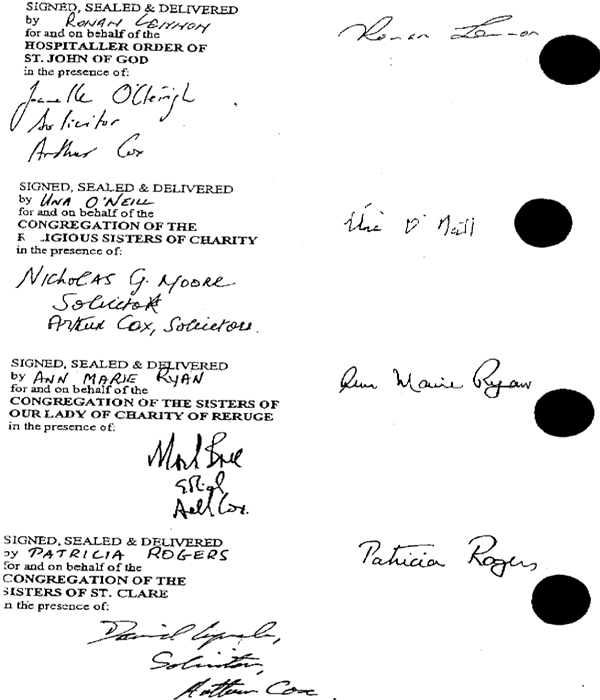 SIGNED, SEALED & DELIVERED
by RONAN LENNON
for and on behalf of the
HOSPITALLER ORDER OF
ST. JOHN OF GOD
in the presence of:
Ronan Lennon
Solicitor
Arthur Cox
SIGNED, SEALED & DELIVERED
by UNA O'NEILL
for and on behalf of the
CONGREGATION OF THE
R IGIOUS SISTERS OF CHARITY
in the presence of:
Una O'Neill
NICHOLAS G. MOORE
Solicitor
Arthur Cox, Solicitors.
SIGNED, SEALED & DELIVERED
by ANN MARIE RYAN
for and on behalf of the
CONGREGATION OF THE SISTERS OF
OUR LADY OF CHARITY OF RERUGE
in the presence of:
Ann Marie Ryan
SIGNED, SEALED & DELIVERED
by PATRICIA ROGERS
for and on behalf of the
CONGREGATION OF THE
SISTERS OF ST. CLARE
n the presence of:
Patricia Rogers
David
Solicitor,
Cox